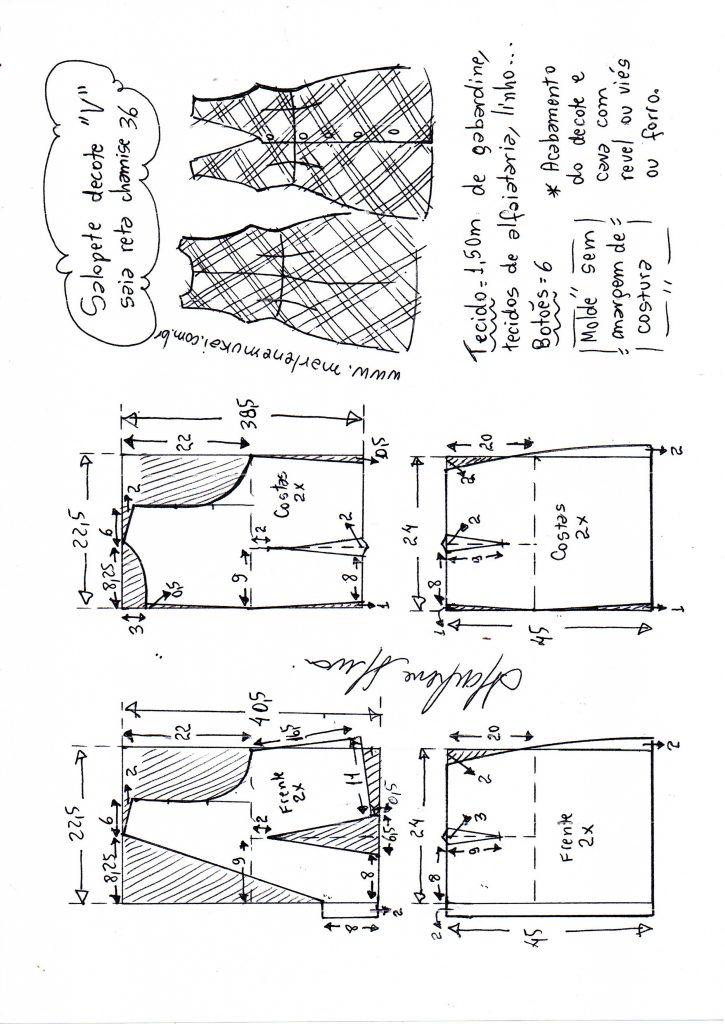 Salopete decote "V"
saia reta chamise 36
www.marlenemukai.com.br
Tecido=1,50m de gabardine,
tecidos de alfaiataria, linho...
Botões=6
* Acabamento
do decote e
cava com
revel ou viés
ou forro.
Molde sem
margem de
costura
22,5
8,25
6
2
3
0,5
22
38,5
Costas
2x
9
2
8
2
1
0,5
24
20
2
1
8
9
2
Costas
2x
45
1
2
Marlene Mukai
22,5
8,25
6
2
22
40,5
Frente
2x
16,5
9
2
11
8
8
6,5
0,5
2
24
20
2
2
8
9
3
Frente
2x
45
2